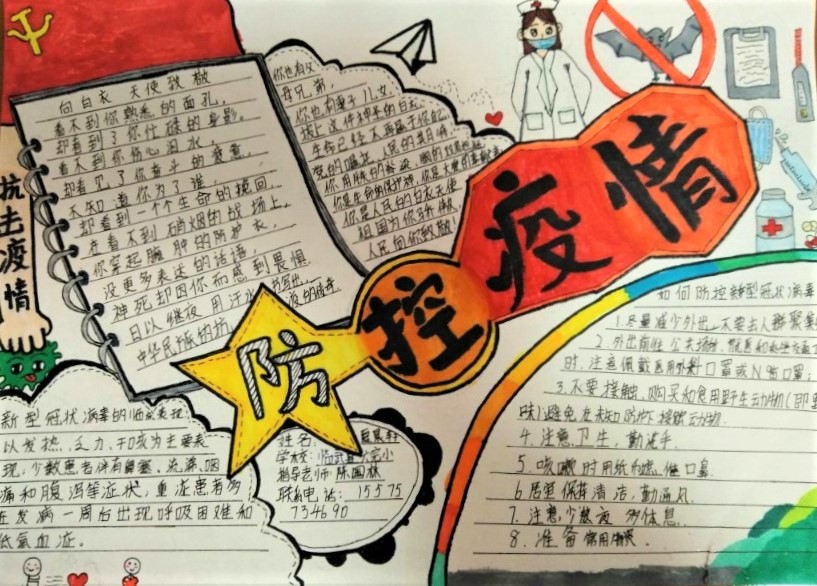 防控疫情
抗击疫情
向白衣天使致敬
看不到你熟悉的面孔,
却看到了你忙碌的身影。
看不到你伤心泪水,
却看见了你奋斗的疲惫
不知道你为了谁,
却看到一个个生命的挽回。
在看不到硝烟的战场上,
你穿起臃肿的防护衣,
没更多表达的话语,
神死却因你而感到畏惧
日以继夜用汗水
中华民族的抗
母兄弟,
你也有妻子儿女,
生命已经不再属于你自己
你是人民的白衣天使
祖国为你骄傲
人民向你致敬!
新型冠状病毒的临床表现
以发热、乏力、干咳为主要表
现,少数患者伴有鼻塞、流涕、咽
痛和腹泻等症状,重症患者多
在发病一周后出现呼吸困难和
低氧血症。
姓名:
学校:临武县
指导老师:陈国林
联系电话:15575
734690
如何防控新型冠状病毒
1.尽量减少外出,不要去人群聚集
2.外出前往公共场所、就医和
时,注意佩戴医用外科口罩或N95口罩;
3.不要接触、购买和食用野生动物(即
味),避免在未知防护下接触动物.
4.注意卫生,勤洗手.
5.咳嗽时用纸巾掩住口鼻.
6.居室保持清洁,勤通风.
7.注意少熬夜 多休息.
8.准备常用物资.